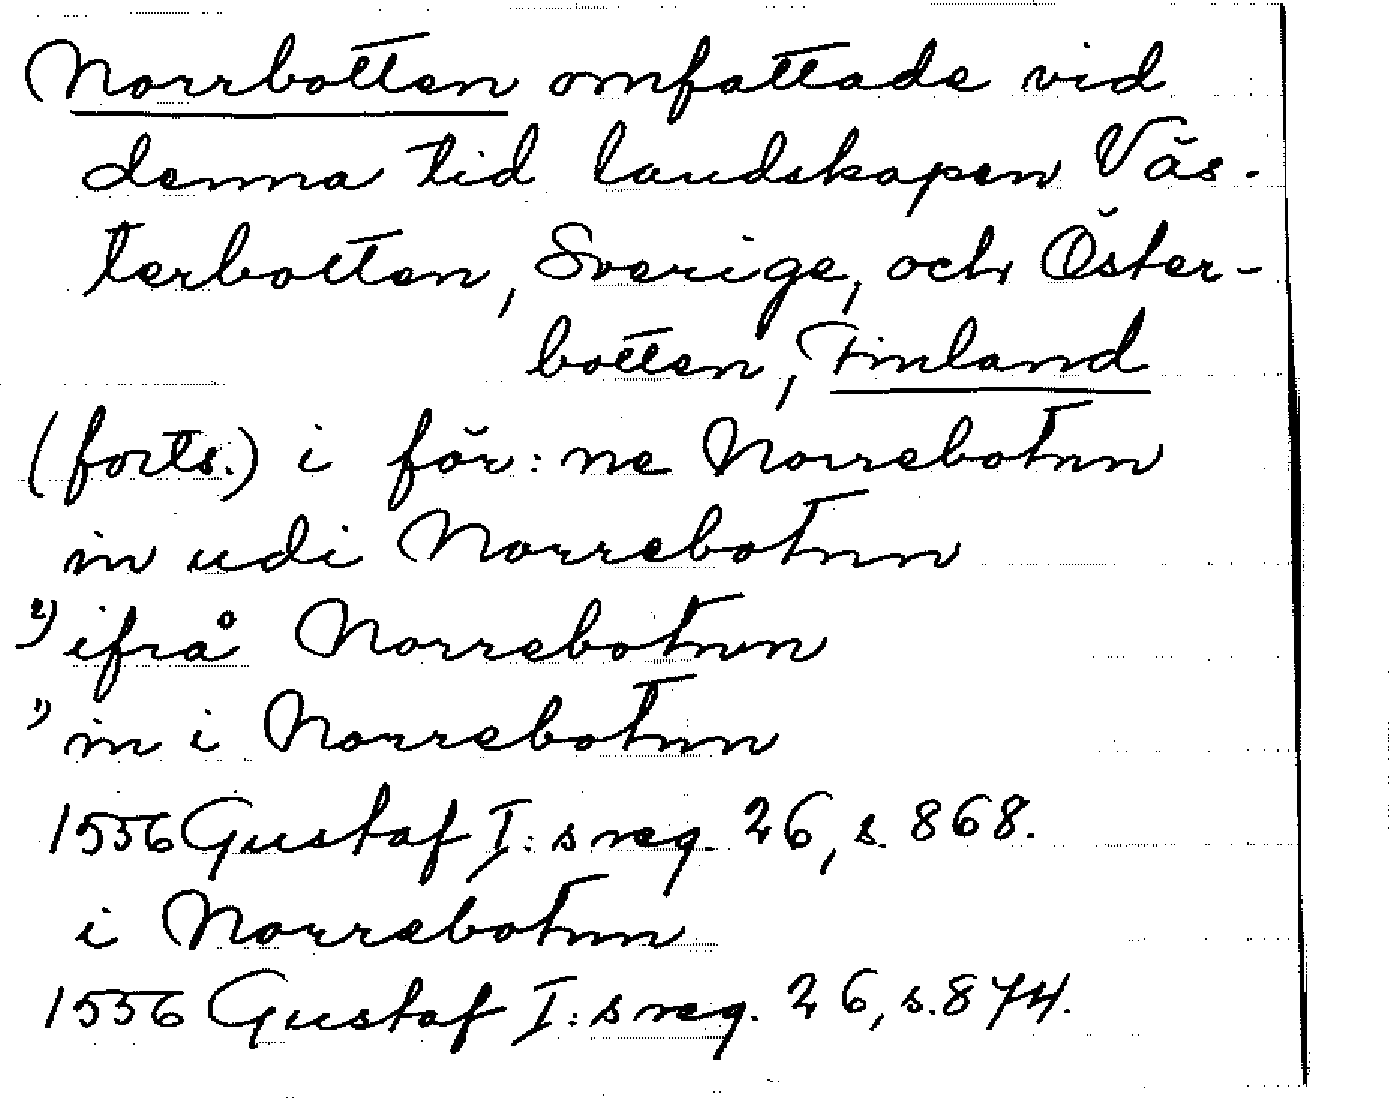 Norrbotten omfattade vid
denna tid landskapen Väs-
terbotten, Sverige, och Öster-
botten, Finland
(forts.) i för:ne Norrebotnn
in udi Norrebotnn
2) ifrå Norrebotnn
1) in i Norrebotnn
1556 Gustaf I:s reg. 26, s. 868.
i Norrebotnn
1556 Gustaf I:s reg. 26, s. 874.